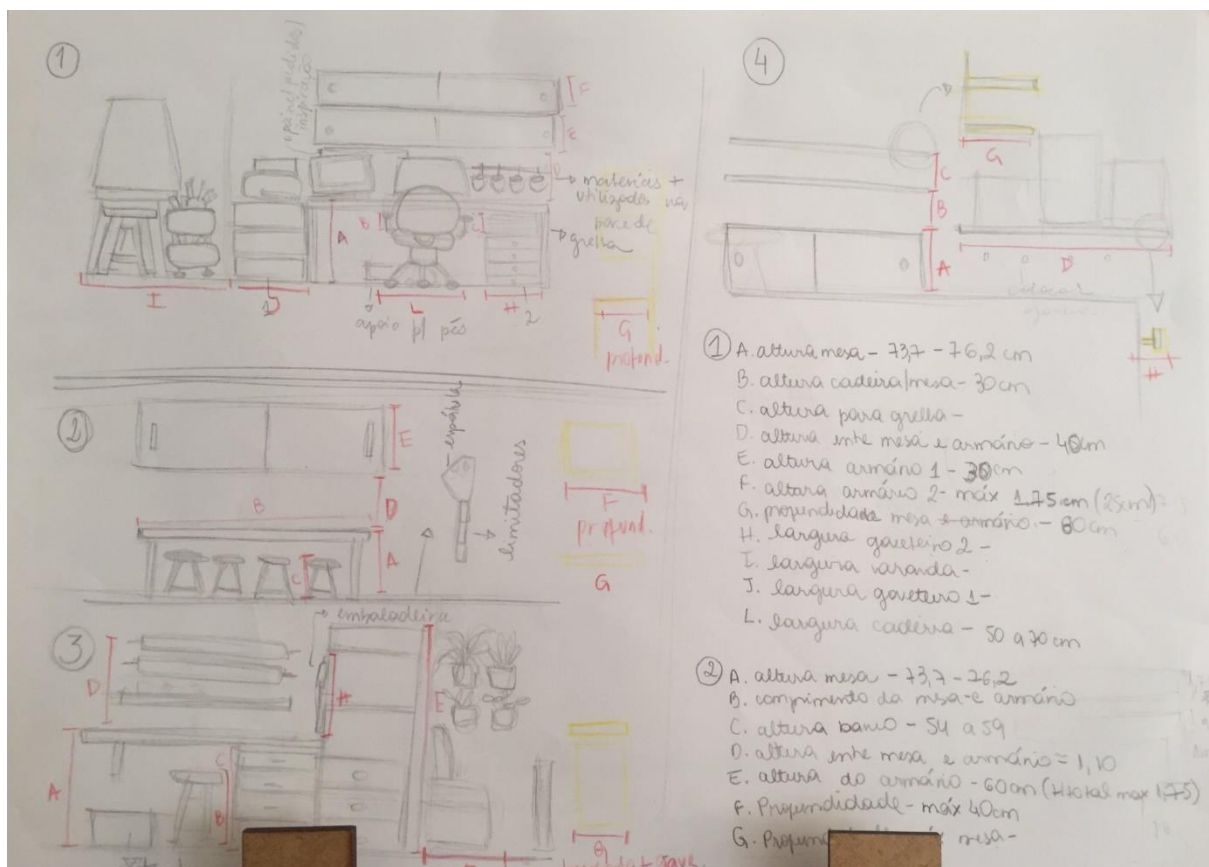 ①
painel pedidos/
inspiração
F
E
D
→ materiais +
utilizados na
parede
→ grelha
A
B
C
I
J
1
L
H
2
apoio p/ pés
G
profund.
②
E
B
D
A
C
espátula
limitadores
F
profund.
G
③
→ embaladeira
D
H
E
A
C
B
G
④
D
G
C
B
A
D
H
① A. altura mesa - 73,7 - 76,2 cm
B. altura cadeira/mesa - 30cm
C. altura para grelha -
D. altura entre mesa e armário - 40cm
E. altura armário 1 - 30cm
F. altura armário 2 - máx 1.75cm (25cm)
G. profundidade mesa e armário - 80cm
H. largura gaveteiro 2 -
I. largura varanda -
J. largura gaveteiro 1 -
L. largura cadeira - 50 a 70 cm
② A. altura mesa - 73,7 - 76,2
B. comprimento da mesa e armário
C. altura banco - 54 a 59
D. altura entre mesa e armário = 1,10
E. altura do armário - 60cm (H total max 1,75)
F. Profundidade - máx 40cm
G. mesa -